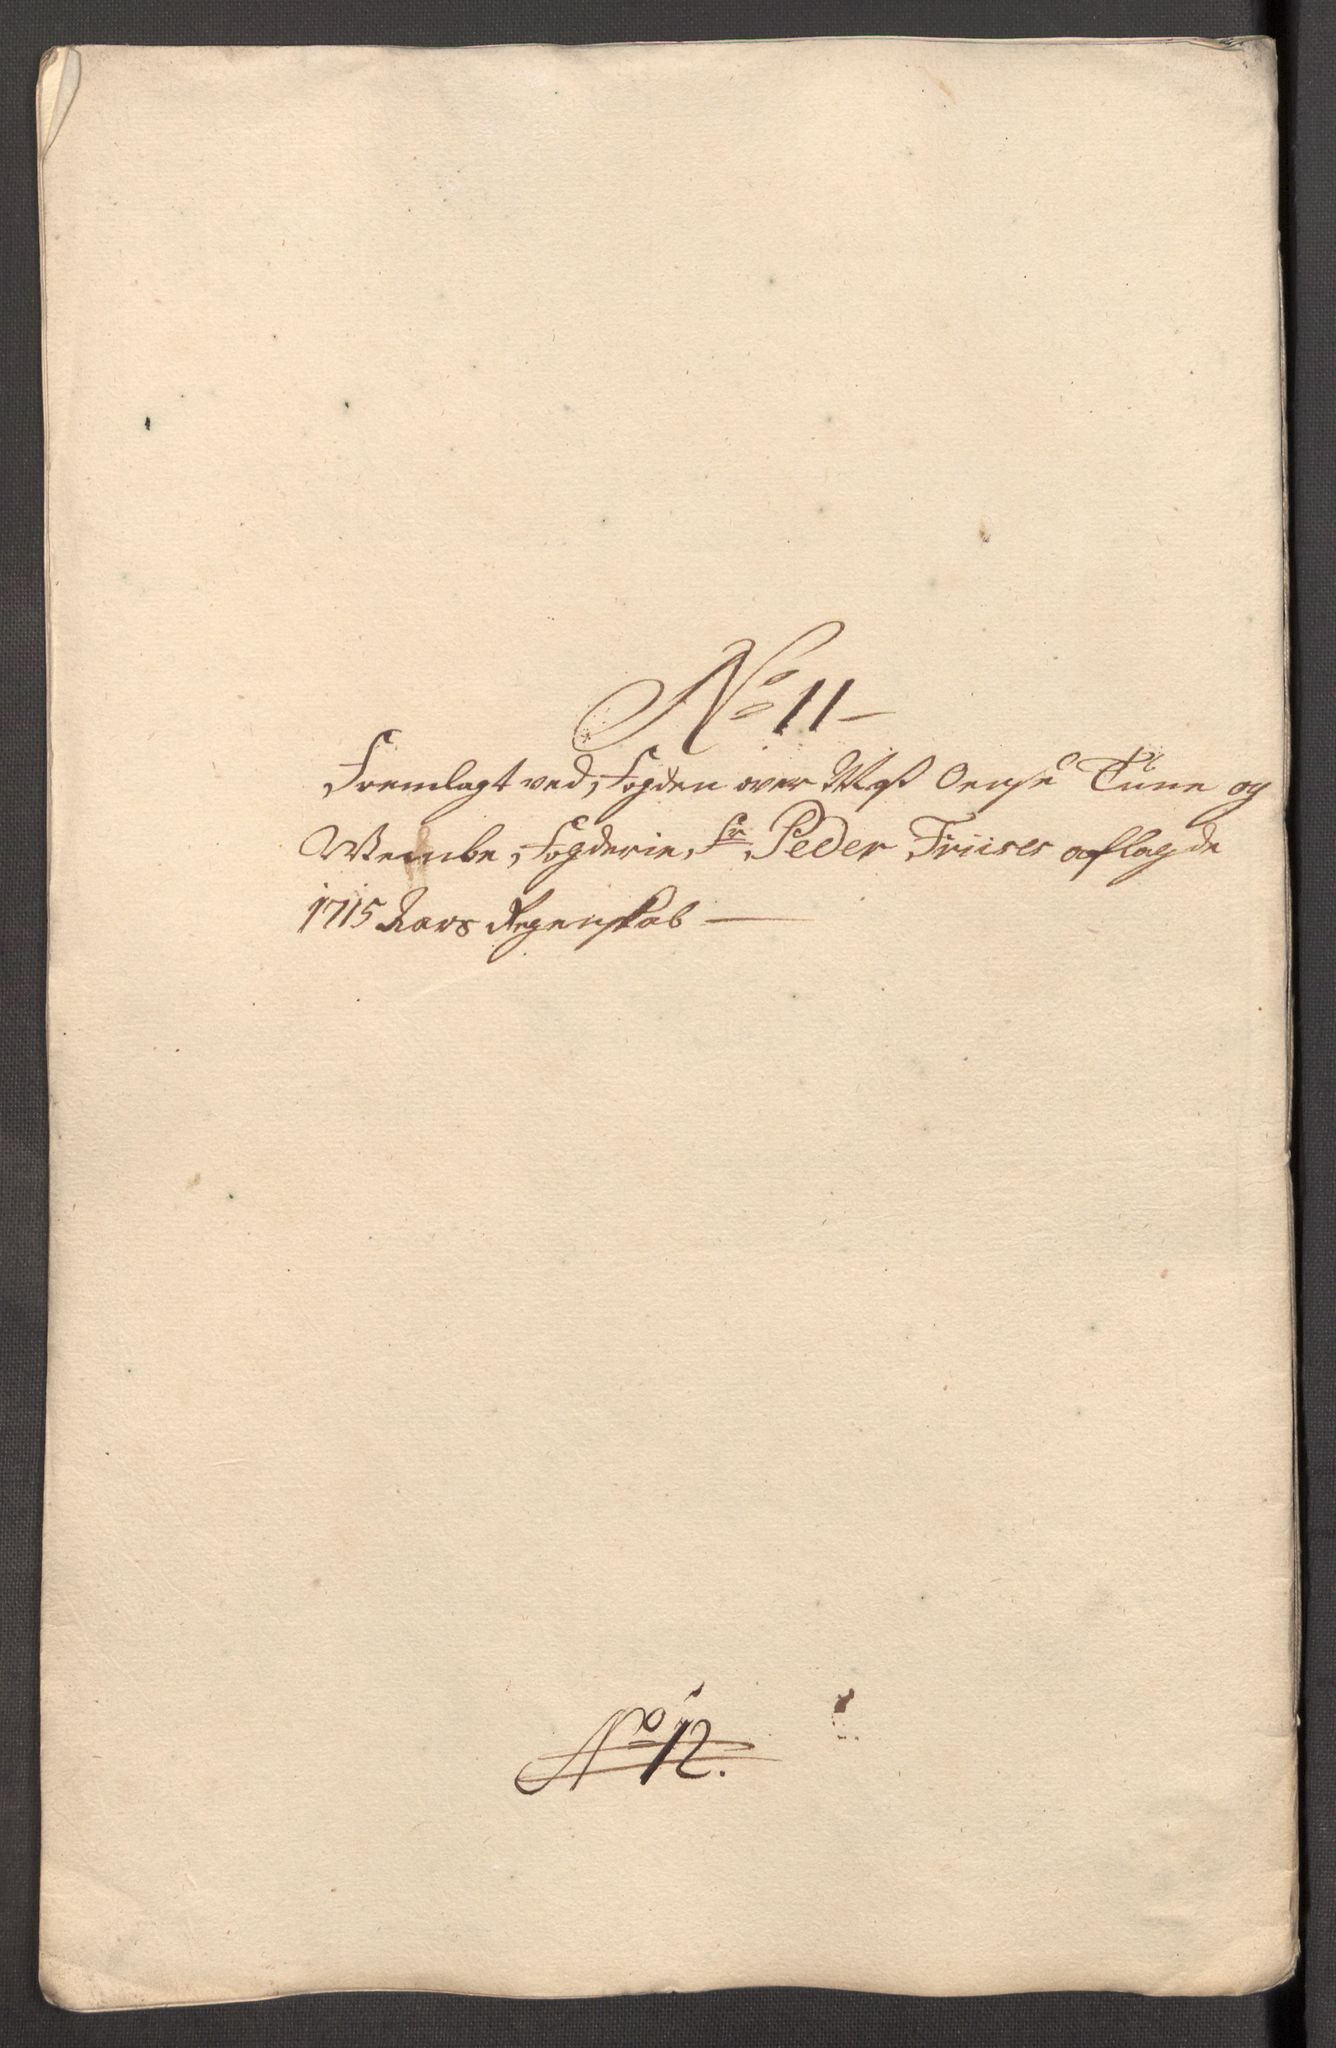 No 11
Fremlagt ved Fogden over Moss Onsøe Tune og
Wembe Fogderie Sr Peder Friises aflagde
1715 Aars Regenskab
No 12.